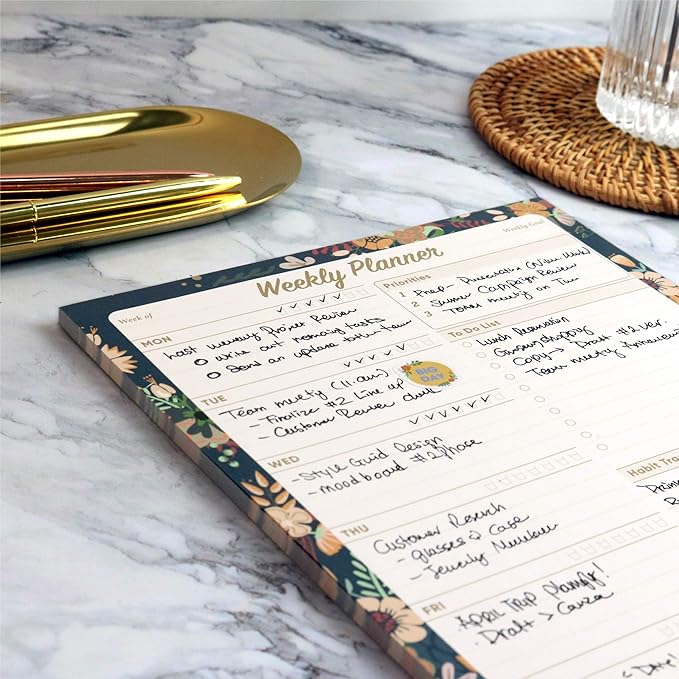 Weekly Planner
Weekly Goal
Week of
Priorities
1 Prep - Presentation
2 Summer Campaign Review
3 Team meeting on Tue
MON
Last Project Review
Write out remaining tasks
Send an update to the team
To Do List
Lunch Reservation
Grocery shopping
Copy -> Draft #2 Ver.
Team meeting
TUE
BIG DAY
Team meeting (11. am)
- Finalize #2 Line up
- Customer Review
WED
- Style Guid Design
- moodboard #2
Habit Tra
THU
Customer Reserch
- Glasses & Case
- Jewelry
FRI
APRIL TRIP
Draft > Canva
DATE!